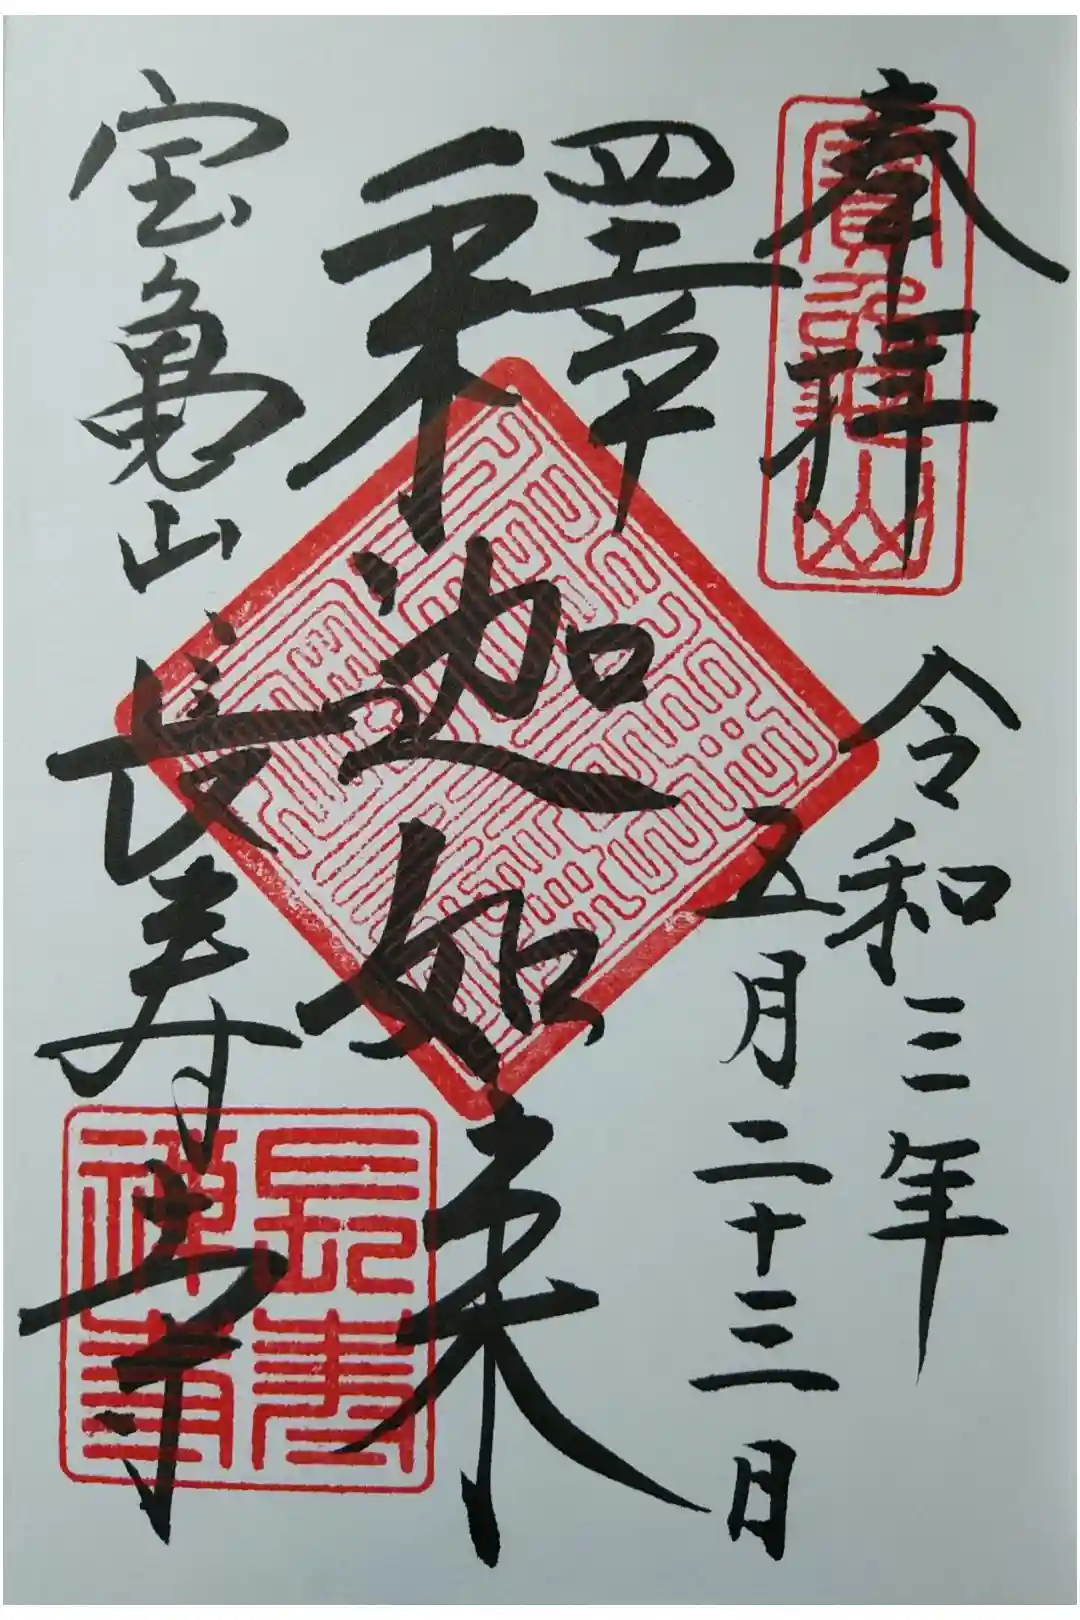 奉拝
令和三年
五月二十三日
釋迦如来
宝亀山長寿寺
寶龜山
長寿禅寺